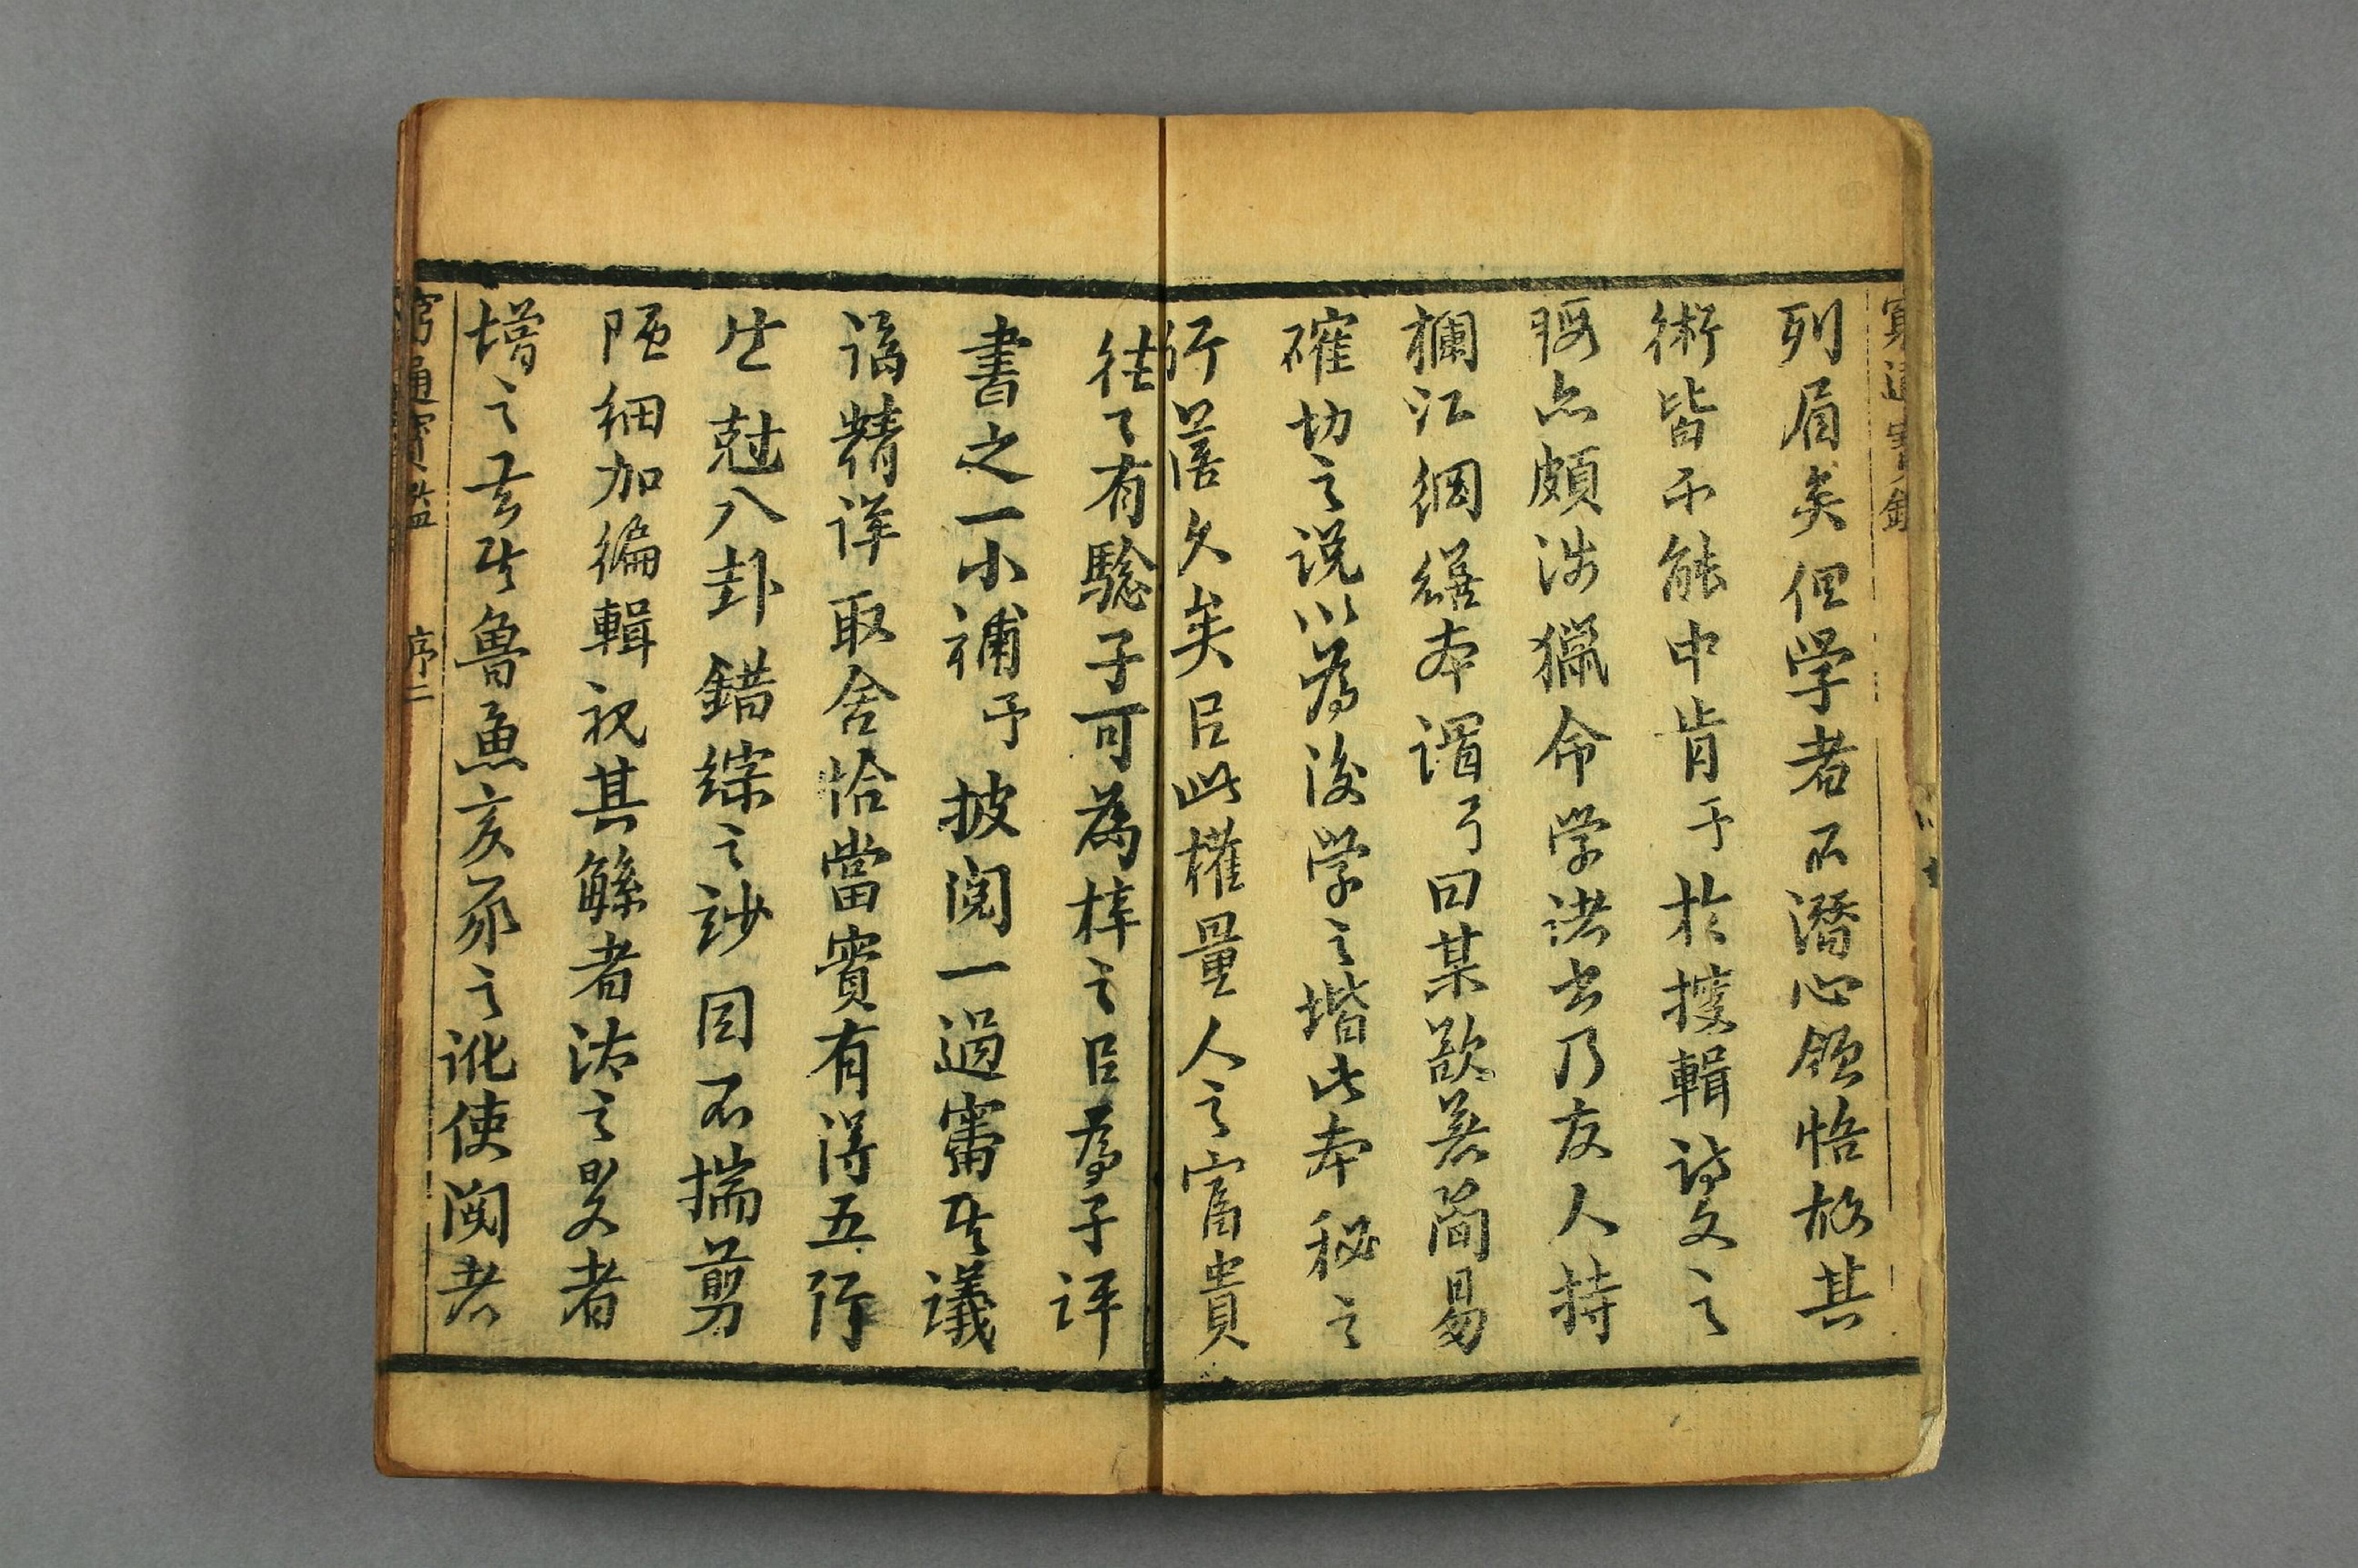 列眉矣但学者不潛心領悟故其
術皆不能中肯予於搜輯詩文之
暇亦頗涉獵命学諸书乃友人持
欄江網繕本謂予曰某欲甚簡易
確切之説以為後学之堦此本秘之
行莒久矣吕此權量人之富貴
往々有驗子可為梓之吕為子評
書之一小補予披閲一過審其議
論精詳取舍恰當實有得五行
生尅八卦錯綜之妙因不揣剪
陋細加編輯視其緐者汰之畧者
增之去其魯魚亥豕之訛使閲者
窮通寶鑑 序二